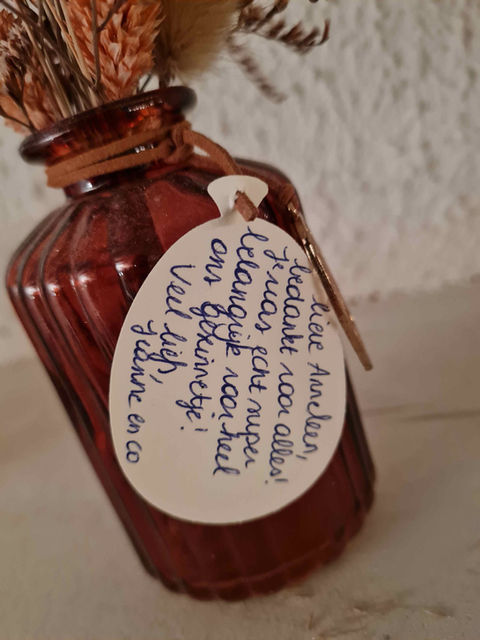 lieve Anneleen,
bedankt voor alles!
Je was echt super
belangrijk voor heel
ons gezinnetje!
Veel liefs,
Jianne en co